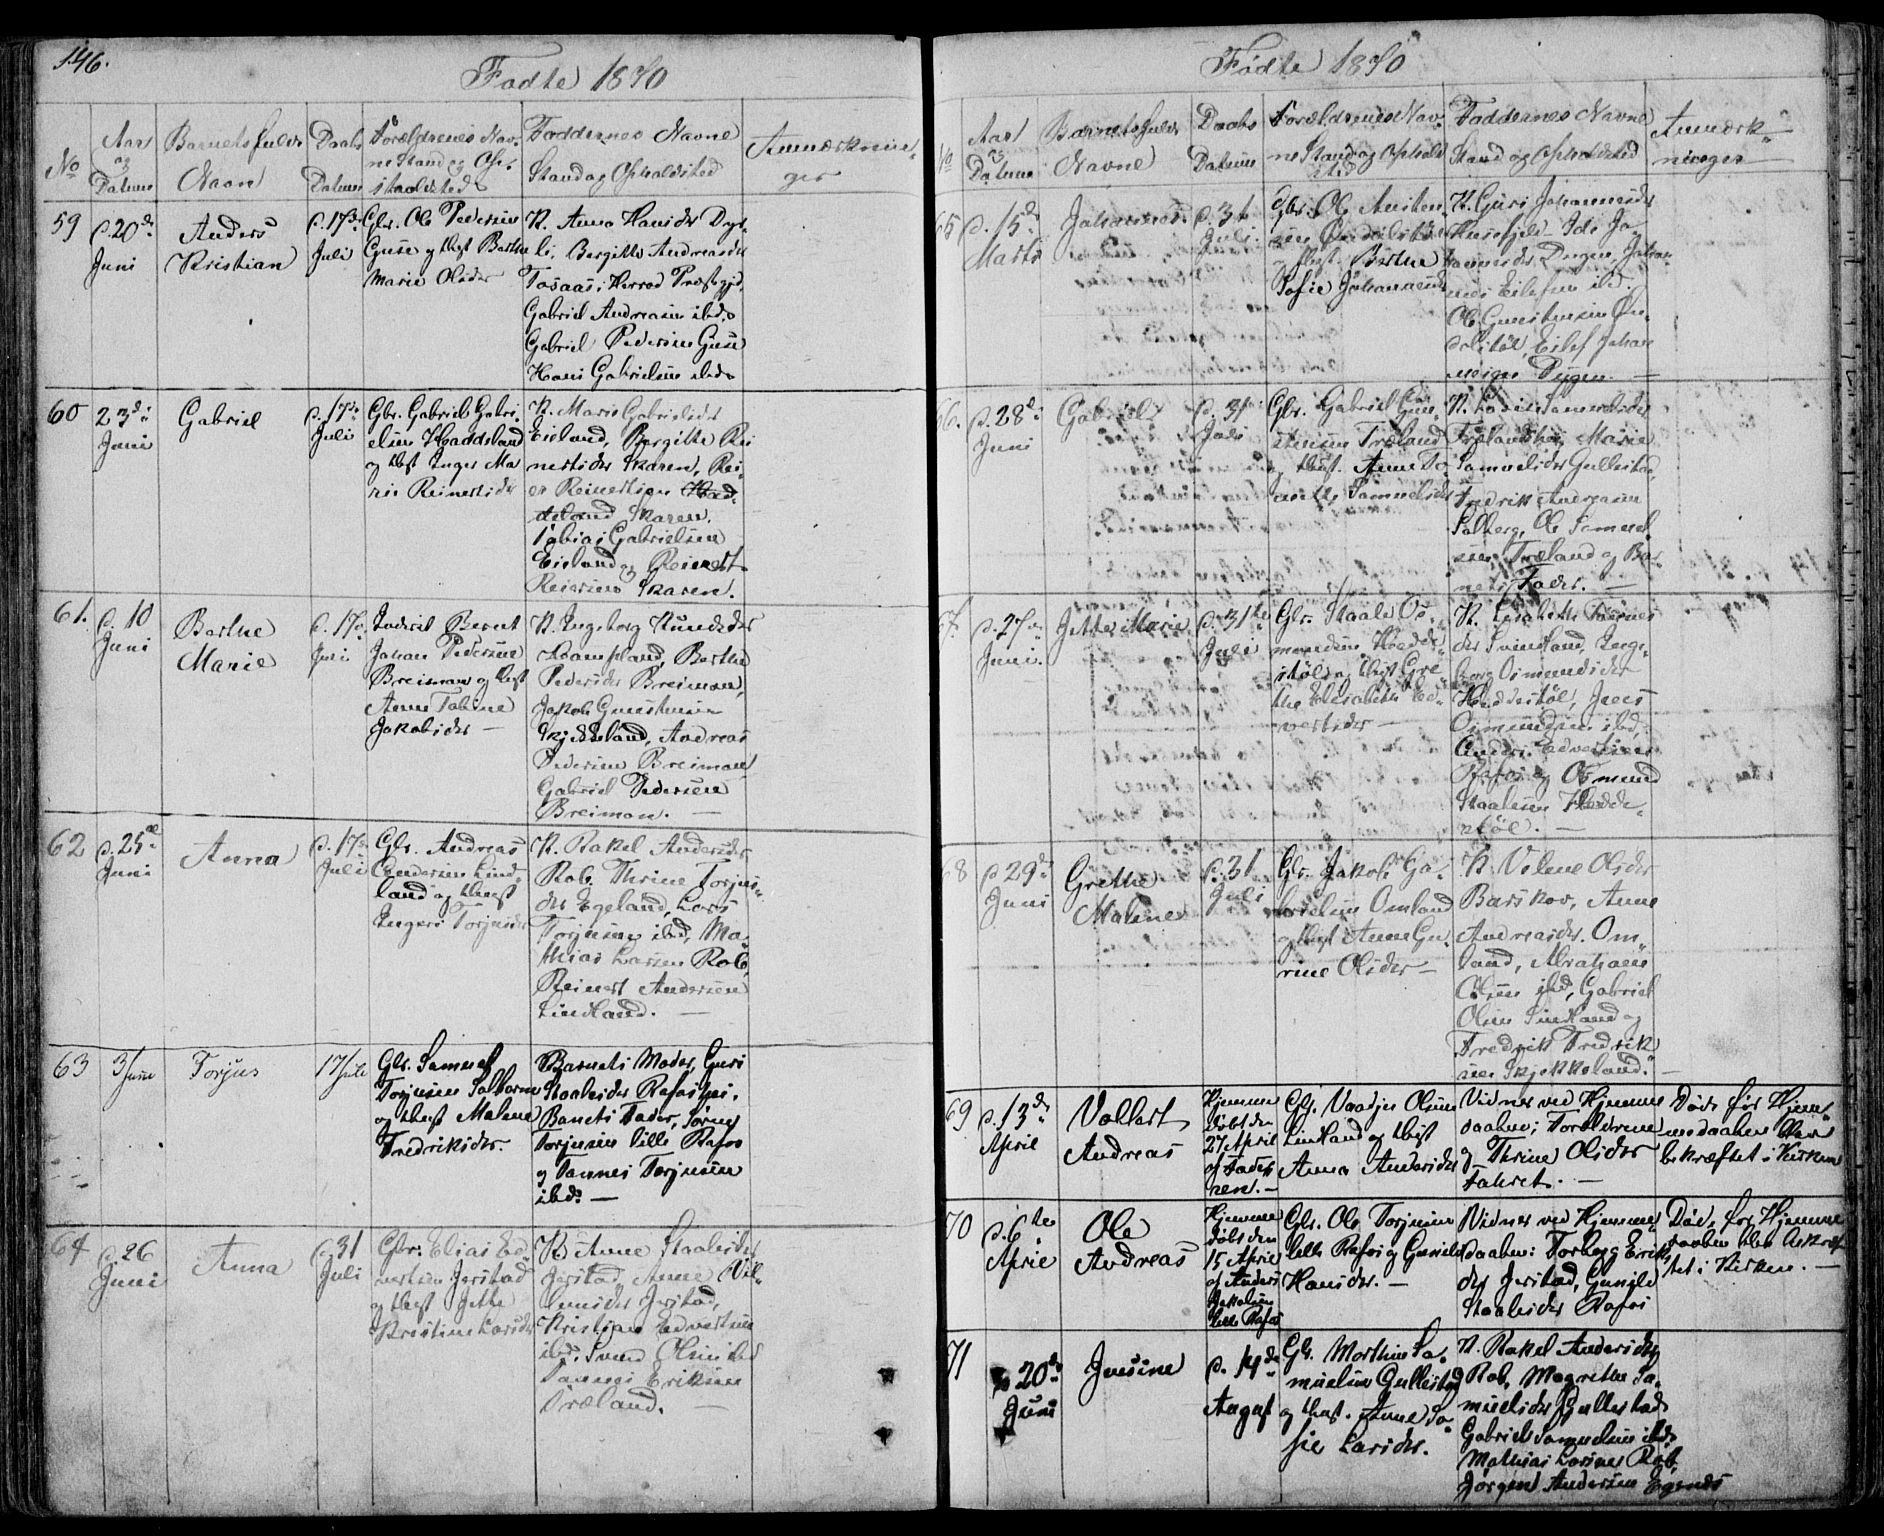 146.
Fødte 1870
No
Aar og Datum
Barnets fulde Navn
Daabs Datum
Forældrenes Navne Stand og Opholdsted
Faddernes Navne Stand og Opholdsted
Anmærkninger
59
d. 20de Juni
Anders Kristian
d. 17de Juli
Gbr. Ole Pedersen
og Hust Berthe
Marie Olsdr
K. Anna Hansdr
Bergitte Andreasdr
i Herred Præstgjd,
Gabriel Andreasen ibd.
Gabriel Pedersen
Hans Gabrielsen ibd.
60
23de Juni
Gabriel
d. 17de Juli
Gbr. Gabriel Gabri
elsen Haddeland
og Hust Inger Ma
rie Reinertsdr
K. Marie Gabrielsdr
Eieland, Bergitte Rei
nertsdr Skaren, Rei
er Reinertsen Had
deland Skaren.
Tobias Gabrielsen
Eieland og Reinert
Reiersen Skaren.
61.
d. 10 Juni
Berthe Marie
d. 17de Juli
Inderst Bernt
Johan Pedersen
Breimon og Hust
Anne Tobine
Jakobsdr —
K. Ingeborg Knudsdr
Berthe
Pedersdr Breimon,
Jakob Gunstensen
Skjekkeland, Andreas
Pedersen Breimon
Gabriel Pedersen
Breimon. —
62
d. 25de Juni
Anna
d. 17de Juli
Gbr. Andreas
Andersen Lind
land og Hust
Ingeri Torjusdr
K. Rakel Andersdr
Rob, Thrine Torjus
dr Egeland, Lars
Torjusen ibd, Ma
thias Larsen Rob,
Reinert Andersen
Lindland. —
63
3 Juni
Torjus
17 Juli
Gbr. Samuel
Torjusen Salthom
og Hust Malene
Fredriksdr.
Barnets Moder, Guri
Staalesdr Rafoshei.
Barnets Fader, Søren
Torjusen lille Rafos
og Tønnes Torjusen
ibd. —
64
d. 26 Juni
Anna
d. 31 Juli
Gbr. Elias Ed
vertsen Jerstad
og Hust Jette
Kristine Larsdr
K. Anne Staalesdr
Jerstad, Anne Vil
lumsdr Jerstad,
Kristian Edvertsen
ibd. Svend Olsen ibd
Tønnes Eriksen
Træland. —
Fødte 1870
No
Aar og Datum
Barnets fulde Navne
Daabs Datum
Forældrenes Navne Stand og Opholdsted
Faddernes Navne Stand og Opholdsted
Anmærkninger
65
d. 15de Marts
Johannes
d. 31 Juli
Gbr. Ole
og Hust. Berthe
Sofie Johannesdr
K. Guri Johannesdr
Husefjeld, Ida Jo
hannesdr Dugen, Johan
nes Eilefsen ibd.
Ole Gunstensen
Eilef Johan
nesen Dugen. —
66.
d. 28de Juni
Gabriel
d. 31 Juli
Gbr. Gabriel Gun
stensen Træland
og Hust. Anne To
mette Samuelsdr
K. Samuelsdr
Trælandshei, Marie
Samuelsdr Gullestad,
Fredrik Andreasen
Solberg, Ole Samuel
sen Træland og Bar
nets Fader. —
67.
d. 27de Juni.
Jette Marie
d. 31te Juli
Gbr. Staale Os
mundsen Hedde
støl og Hust Gre
the Elisabeth Ed
vertsdr —
K. Elisabeth Tønnes
dr Svindland, Inge
borg Osmundsdr
Heddestøl, Jens
Osmundsen ibd,
Anders Edvertsen
Rafos og Osmund
Staalesen Hedde
støl. —
68
d. 29de Juni
Grethe Malene
d. 31 Juli
Gbr. Jakob Ga
brielsen Omland
og Hust Anne Gu
rine Olsdr —
K. Velene Olsdr
Barskov, Anne
Andreasdr. Om
land, Abraham
Olsen ibd, Gabriel
Olsen Sindland og
Fredrik Fredrik
sen Skjekkeland. —
69
d. 13de April
Vollert Andreas
Hjemme døbt den 27 April af Faderen. —
Gbr. Vaadje Olsen
Lindland og Hust
Anna Andersdr
Vidner ved Hjemme
daaben; Forældrene
og Thrine Olsdr
Fahret. —
Døde før Hjem
medaaben blev
bekræftet i Kirken
70
d. 6te April
Ole Andreas
Hjemme døbt den 15 April af Anders Jakobsen lille Rafos
Gbr. Ole Torjusen
lille Rafos og Gunild
Hansdr. —
Vidner ved Hjemme
daaben: Torborg Eriks
dr Jerstad, Gunild
Staalesdr Rafos
Død, før Hjemme
daaben blev bekræf
tet i Kirken. —
71
d. 20de Juni
Jensine
d. 14de August
Gbr. Morthen Sa
muelsen Gullestad
og Hust. Anne So
fie Larsdr.
K. Rakel Andersdr
Rob, Magrethe Sa
muelsdr Gullestad
Gabriel Samuelsen ibd.
Mathias Larsen Rob
Jørgen Andersen Egenes